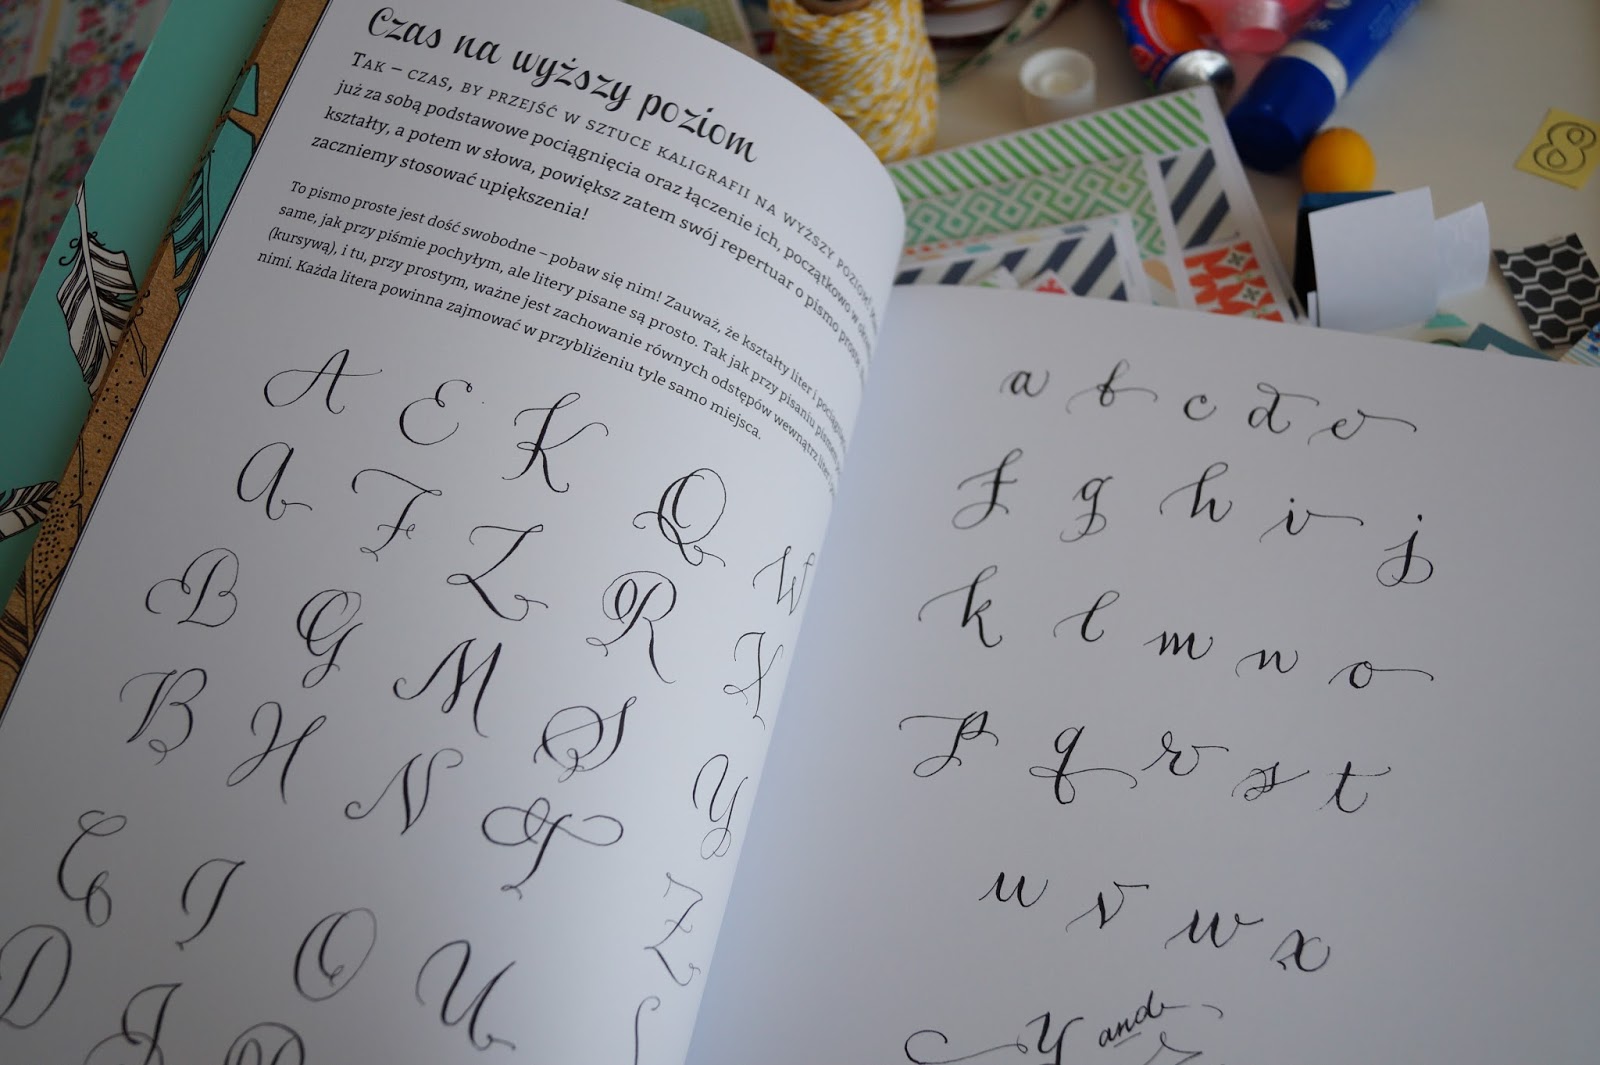 Czas na wyższy poziom
Tak – czas, by przejść w sztuce kaligrafii na wyższy poziom!
już za sobą podstawowe pociągnięcia oraz łączenie ich, początkowo w
kształty, a potem w słowa, powiększ zatem swój repertuar o pismo proste
zaczniemy stosować upiększenia!
To pismo proste jest dość swobodne – pobaw się nim! Zauważ, że kształty liter i
same, jak przy piśmie pochyłym, ale litery pisane są prosto. Tak jak przy pisaniu pismem
(kursywą), i tu, przy prostym, ważne jest zachowanie równych odstępów wewnątrz liter
nimi. Każda litera powinna zajmować w przybliżeniu tyle samo miejsca.
A E K Q W
A F L R X
B G M S Y
B H N T Z
C I O U
D J
a b c d e
f g h i j
k l m n o
p q r s t
u v w x
y and z
8